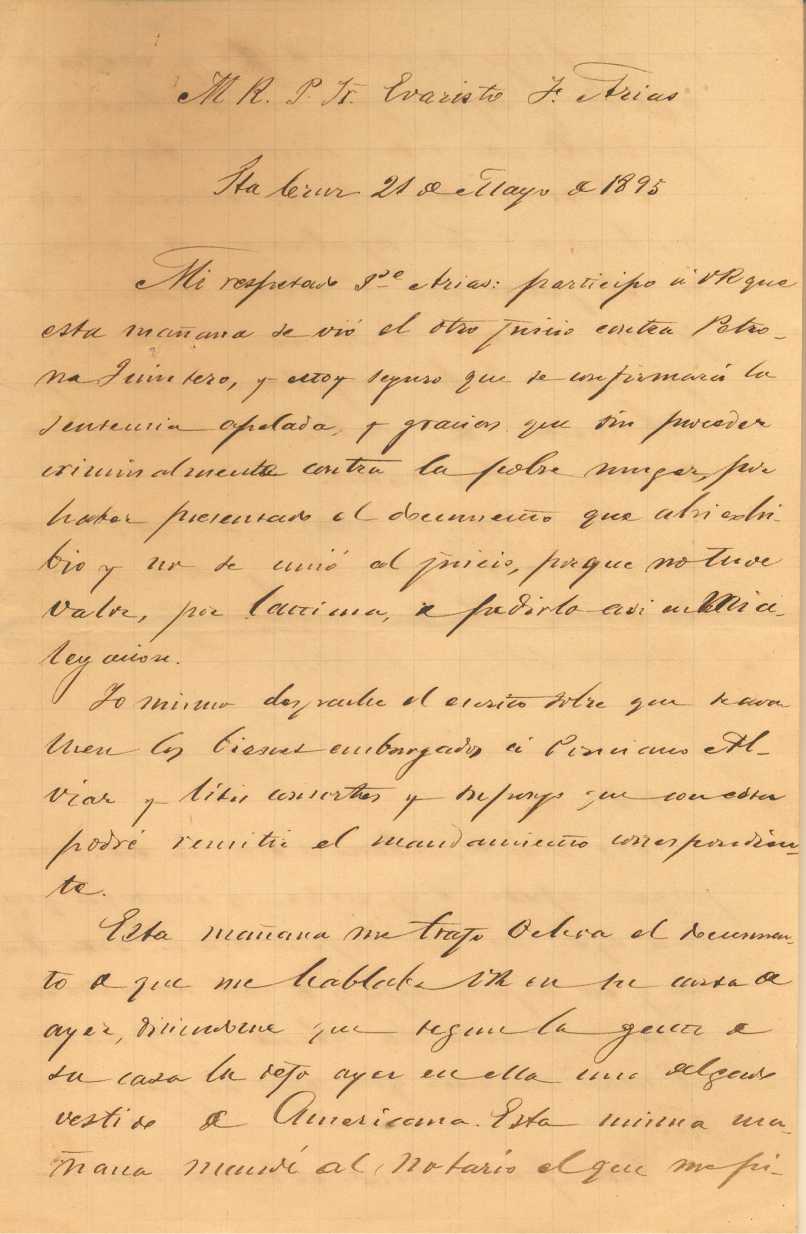 M R. P. Fr. Evaristo F. Arias
Sta Cruz 21 de Mayo de 1895
Mi respetado Pe Arias: participo á VR que
esta mañana se vió el otro juicio contra Petro-
na Quintero, y estoy seguro que se confirmará la
sentencia apelada, y gracias que sin proceder
criminalmente contra la pobre muger, por
haber presentado el documento que alli exhi-
bio y no se unió al juicio, porque no tuve
valor, por lastima, á pedirlo asi en mi a-
legacion.
Lo mismo despaché el escrito sobre que se ava
luen los bienes embargados á Ponciano Al-
viar y litis consortes y supongo que con este
podré remitir el mandamiento correspondien-
te.
Esta mañana me trajo Ochoa el documen-
to de que me hablaba VR en su carta de
ayer, diciendome que segun la gente de
su casa la dejó ayer en ella uno delgado
vestido de Americana. Esta misma ma-
ñana mandé al Notario el que me pi-